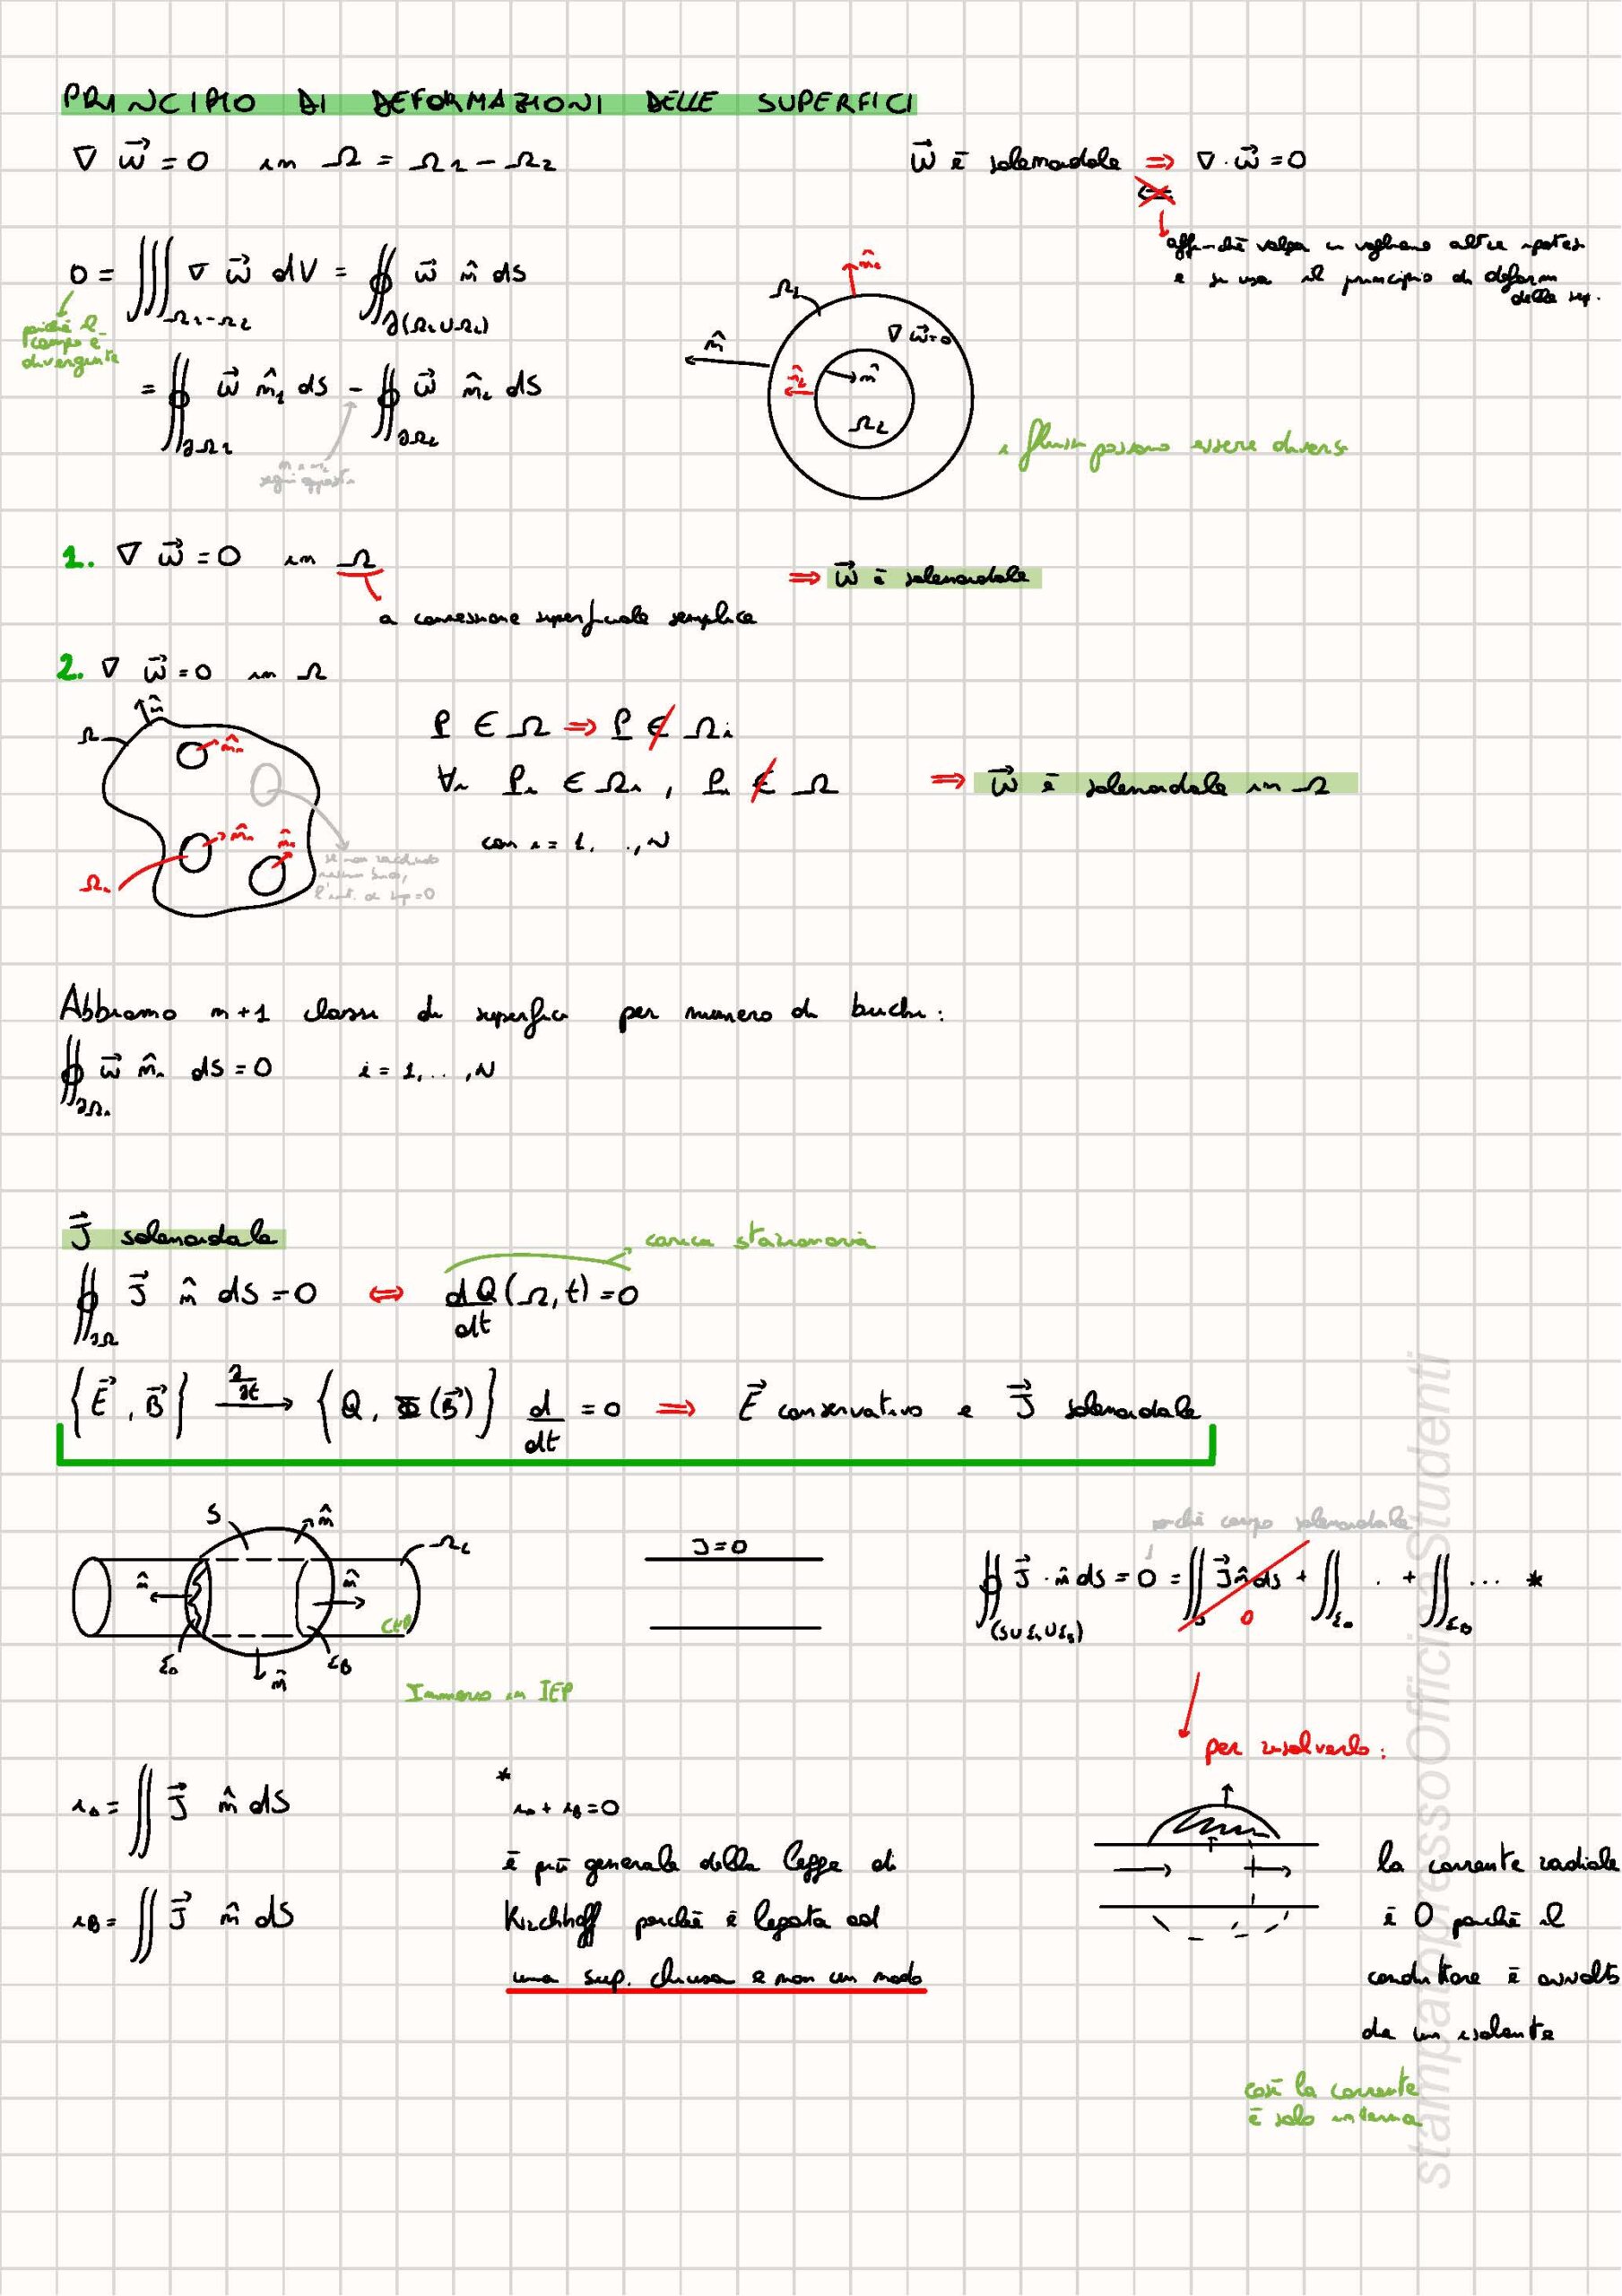 PRINCIPIO DI DEFORMAZIONI DELLE SUPERFICI
∇ w⃗ = 0 in Ω = Ω₁ - Ω₂
w⃗ è solenoidale ⇒ ∇ · w⃗ = 0
⇐
affinché valga ci vogliono altre ipotesi
e si usa il principio di deform
della sup.
0 = ∭_{Ω₁-Ω₂} ∇ w⃗ dV = ∯_{∂(Ω₁∪Ω₂)} w⃗ n̂ dS
poiché il
campo è
divergente
= ∯_{∂Ω₁} w⃗ n̂₁ dS - ∯_{∂Ω₂} w⃗ n̂₂ dS
n e n₂
segni opposti
Ω₁
n̂₁
∇ w⃗=0
n̂
n̂₂
n̂
Ω₂
i flussi possono essere diversi
1. ∇ w⃗ = 0 in Ω
⇒ w⃗ è solenoidale
a connessione superficiale semplice
2. ∇ w⃗ = 0 in Ω
n̂
Ω
n̂ᵢ
n̂ᵢ
n̂ᵢ
Ωᵢ
se non racchiudo
nessun buco,
l'int. di sup=0
P ∈ Ω ⇒ P ∉ Ωᵢ
∀i Pᵢ ∈ Ωᵢ, Pᵢ ∉ Ω ⇒ w⃗ è solenoidale in Ω
con i = 1, .., N
Abbiamo n+1 classi di superfici per numero di buchi:
∯_{∂Ωᵢ} w⃗ n̂ᵢ dS = 0 i = 1, .., N
J⃗ solenoidale
carica stazionaria
∯_{∂Ω} J⃗ n̂ dS = 0 ⇔ dQ/dt (Ω, t) = 0
{E⃗, B⃗} ∂/∂t → {Q, Φ(B⃗)} d/dt = 0 ⇒ E⃗ conservativo e J⃗ solenoidale
S
n̂
Ωc
n̂
n̂
n̂
Σ_A
Σ_B
Immerso in IEP
J=0
perché campo solenoidale
∯_{(S∪Σ_A∪Σ_B)} J⃗ · n̂ dS = 0 = ∬_S J⃗ n̂ dS + ∬_{Σ_A} . + ∬_{Σ_B} ... *
0
per risolverlo:
i_A = ∬ J⃗ n̂ dS
i_B = ∬ J⃗ n̂ dS
*
i_A + i_B = 0
è più generale della legge di
Kirchhoff perché è legata ad
una sup. chiusa e non un nodo
la corrente radiale
è 0 perché il
conduttore è avvolto
da un isolante
così la corrente
è solo interna
stampato presso Officina Studenti